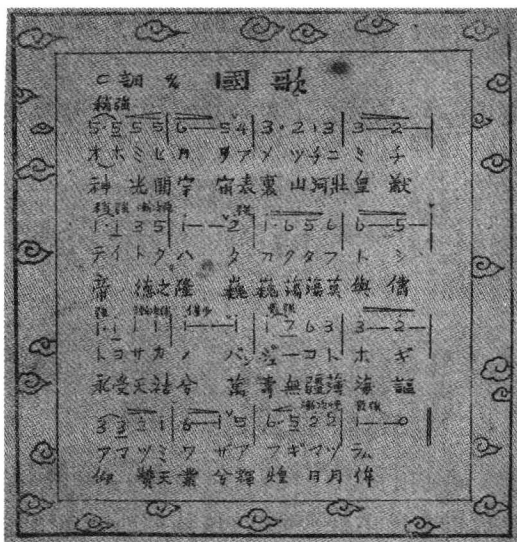 C調 4/4 國歌
稍強
5·5 5 5|6—5 4|3·2 1 3|3—2—|
オホミヒカ リアメツチニ ミチ
神光開宇 宙表裏山河壯皇猷
1·1 3 5|1——2|1·6 5 6|6—5—|
テイトクハ タカクタフトシ
帝德之隆 巍巍蕩蕩莫與儔
1·1 1 1|1——1|1 7 6 3|3—2—|
トヨサカノ バンジューコトホギ
永受天祐兮 萬壽無疆薄海謳
3 3 2 1|6—1 5|6·5 2 2|1——0
アマツミワザアフギマツラム
仰贊天業兮輝煌日月侔